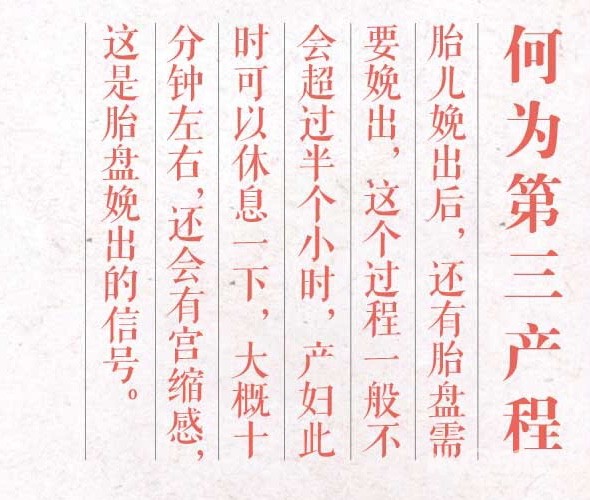 何为第三产程
胎儿娩出后，还有胎盘需
要娩出，这个过程一般不
会超过半个小时，产妇此
时可以休息一下，大概十
分钟左右，还会有宫缩感，
这是胎盘娩出的信号。